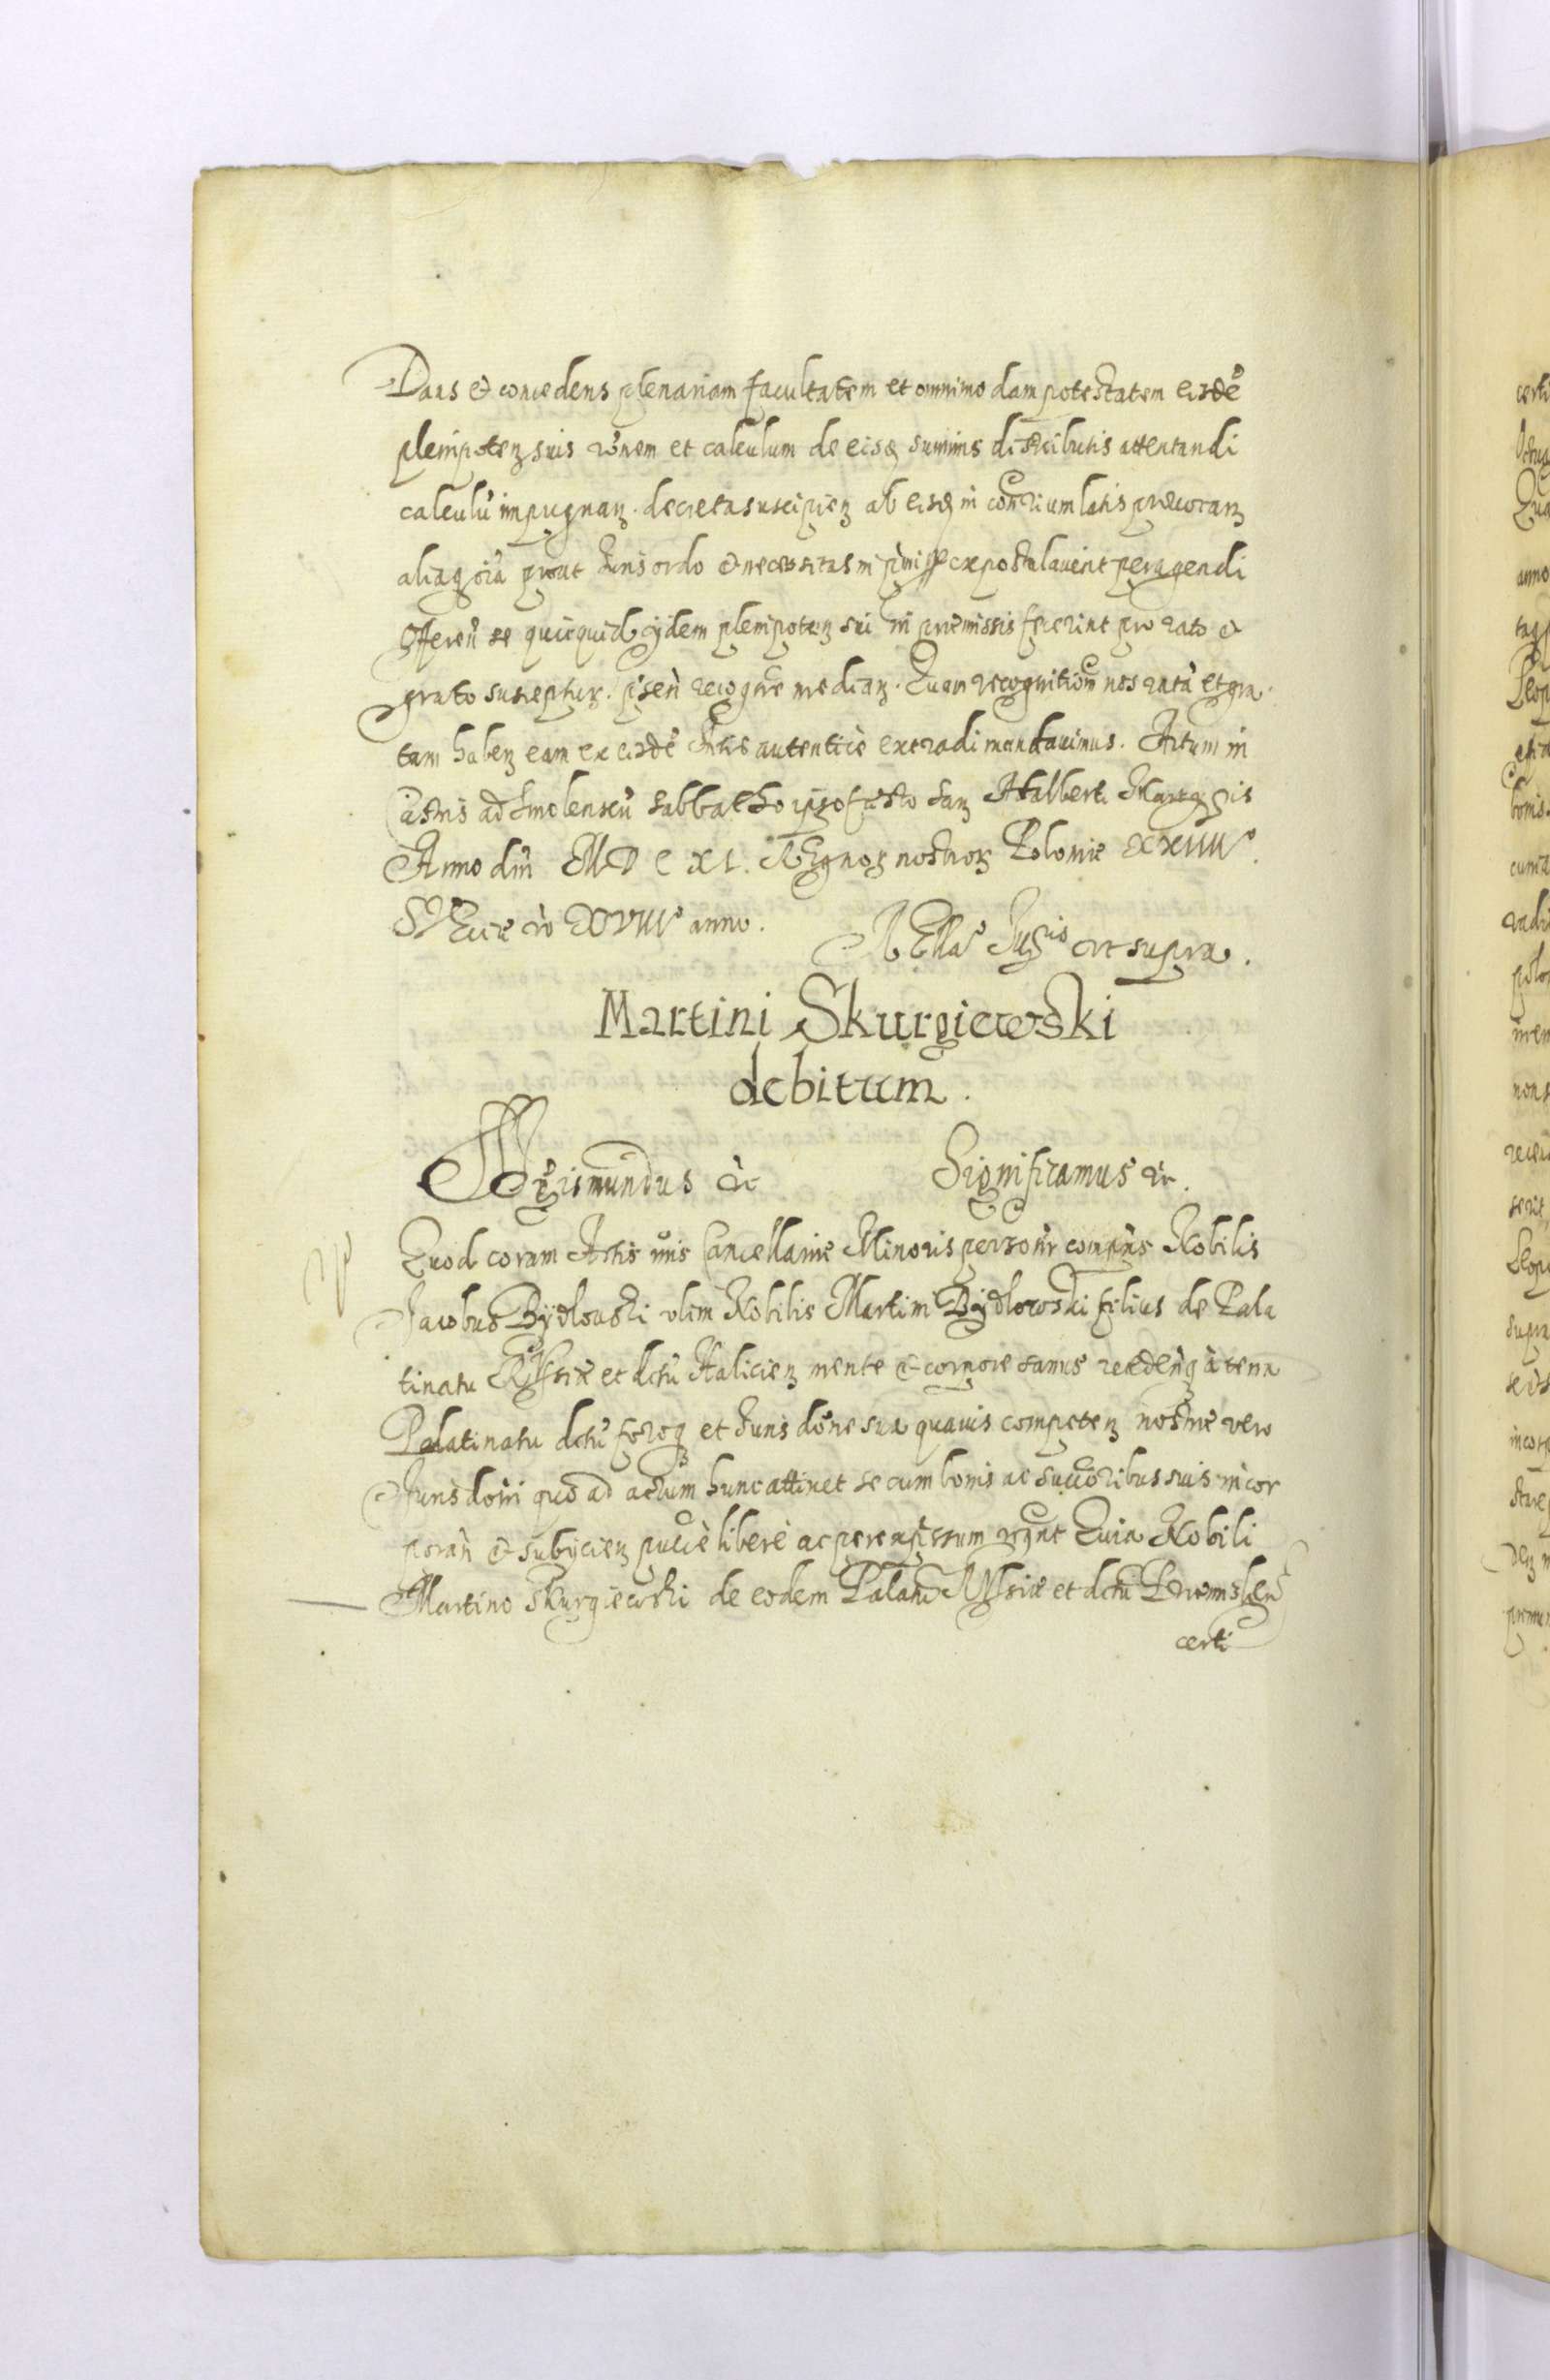 Dans et concedens plenariam facultatem et omnimodam potestatem eisdē
plenipoten suis rōnem et calculum de eisq summis distributis attentandi
calculū impugnan. decreta suscipien ab eisq in contrium latis prouocan
aliaq oīa prout Juris ordo et necessitas in pmiss expostulauerit peragendi
Offeren se quicquid ijdem plenipoten sui in præmissis fecerint pro rato et
grato suscepturū. pñsen recognre median. Quam recognitiom nos ratā et gra
tam haben eam ex eisdē Actis autenticè extradi mandauimus. Actum in
Castris ad Smolenscū sabbatho ipso festo San Adalberti Martyris
Anno dni M D C X I. Regnor nostror Poloniæ XXIIII°.
Sueciæ vō XVIII° anno.
Rella Eius ut supra.
Martini Skurgiewski
debitum.
Sigismundus &c Significamus &c.
Quod coram Actis nris Cancellariæ Minoris personlr comprns Nobilis
Jacobus Bydlowski olim Nobilis Martini Bydlowski filius de Pala
tinatu Russiæ et dctū Halicien mente et corpore sanus recedenq à terra
Palatinatu dctū foroq et Juris dōne sua quauis competen nostræ vero
Jurisdōni quo ad actum hunc attinet se cum bonis ac succoribus suis incor
poran et subijcien pucè liberè ac per expressum rgnt Quia Nobili
Martino Skurgiewski de eodem Palatū Russiæ et dctū Præmislen
certi